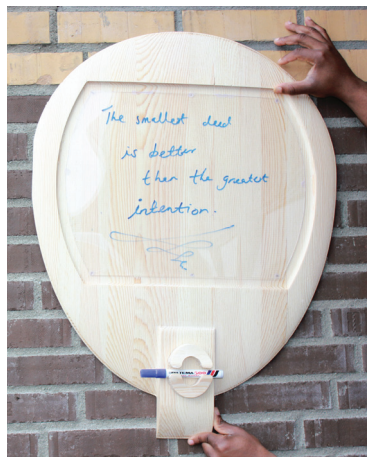 The smallest deed
is better
then the greatest
intention.